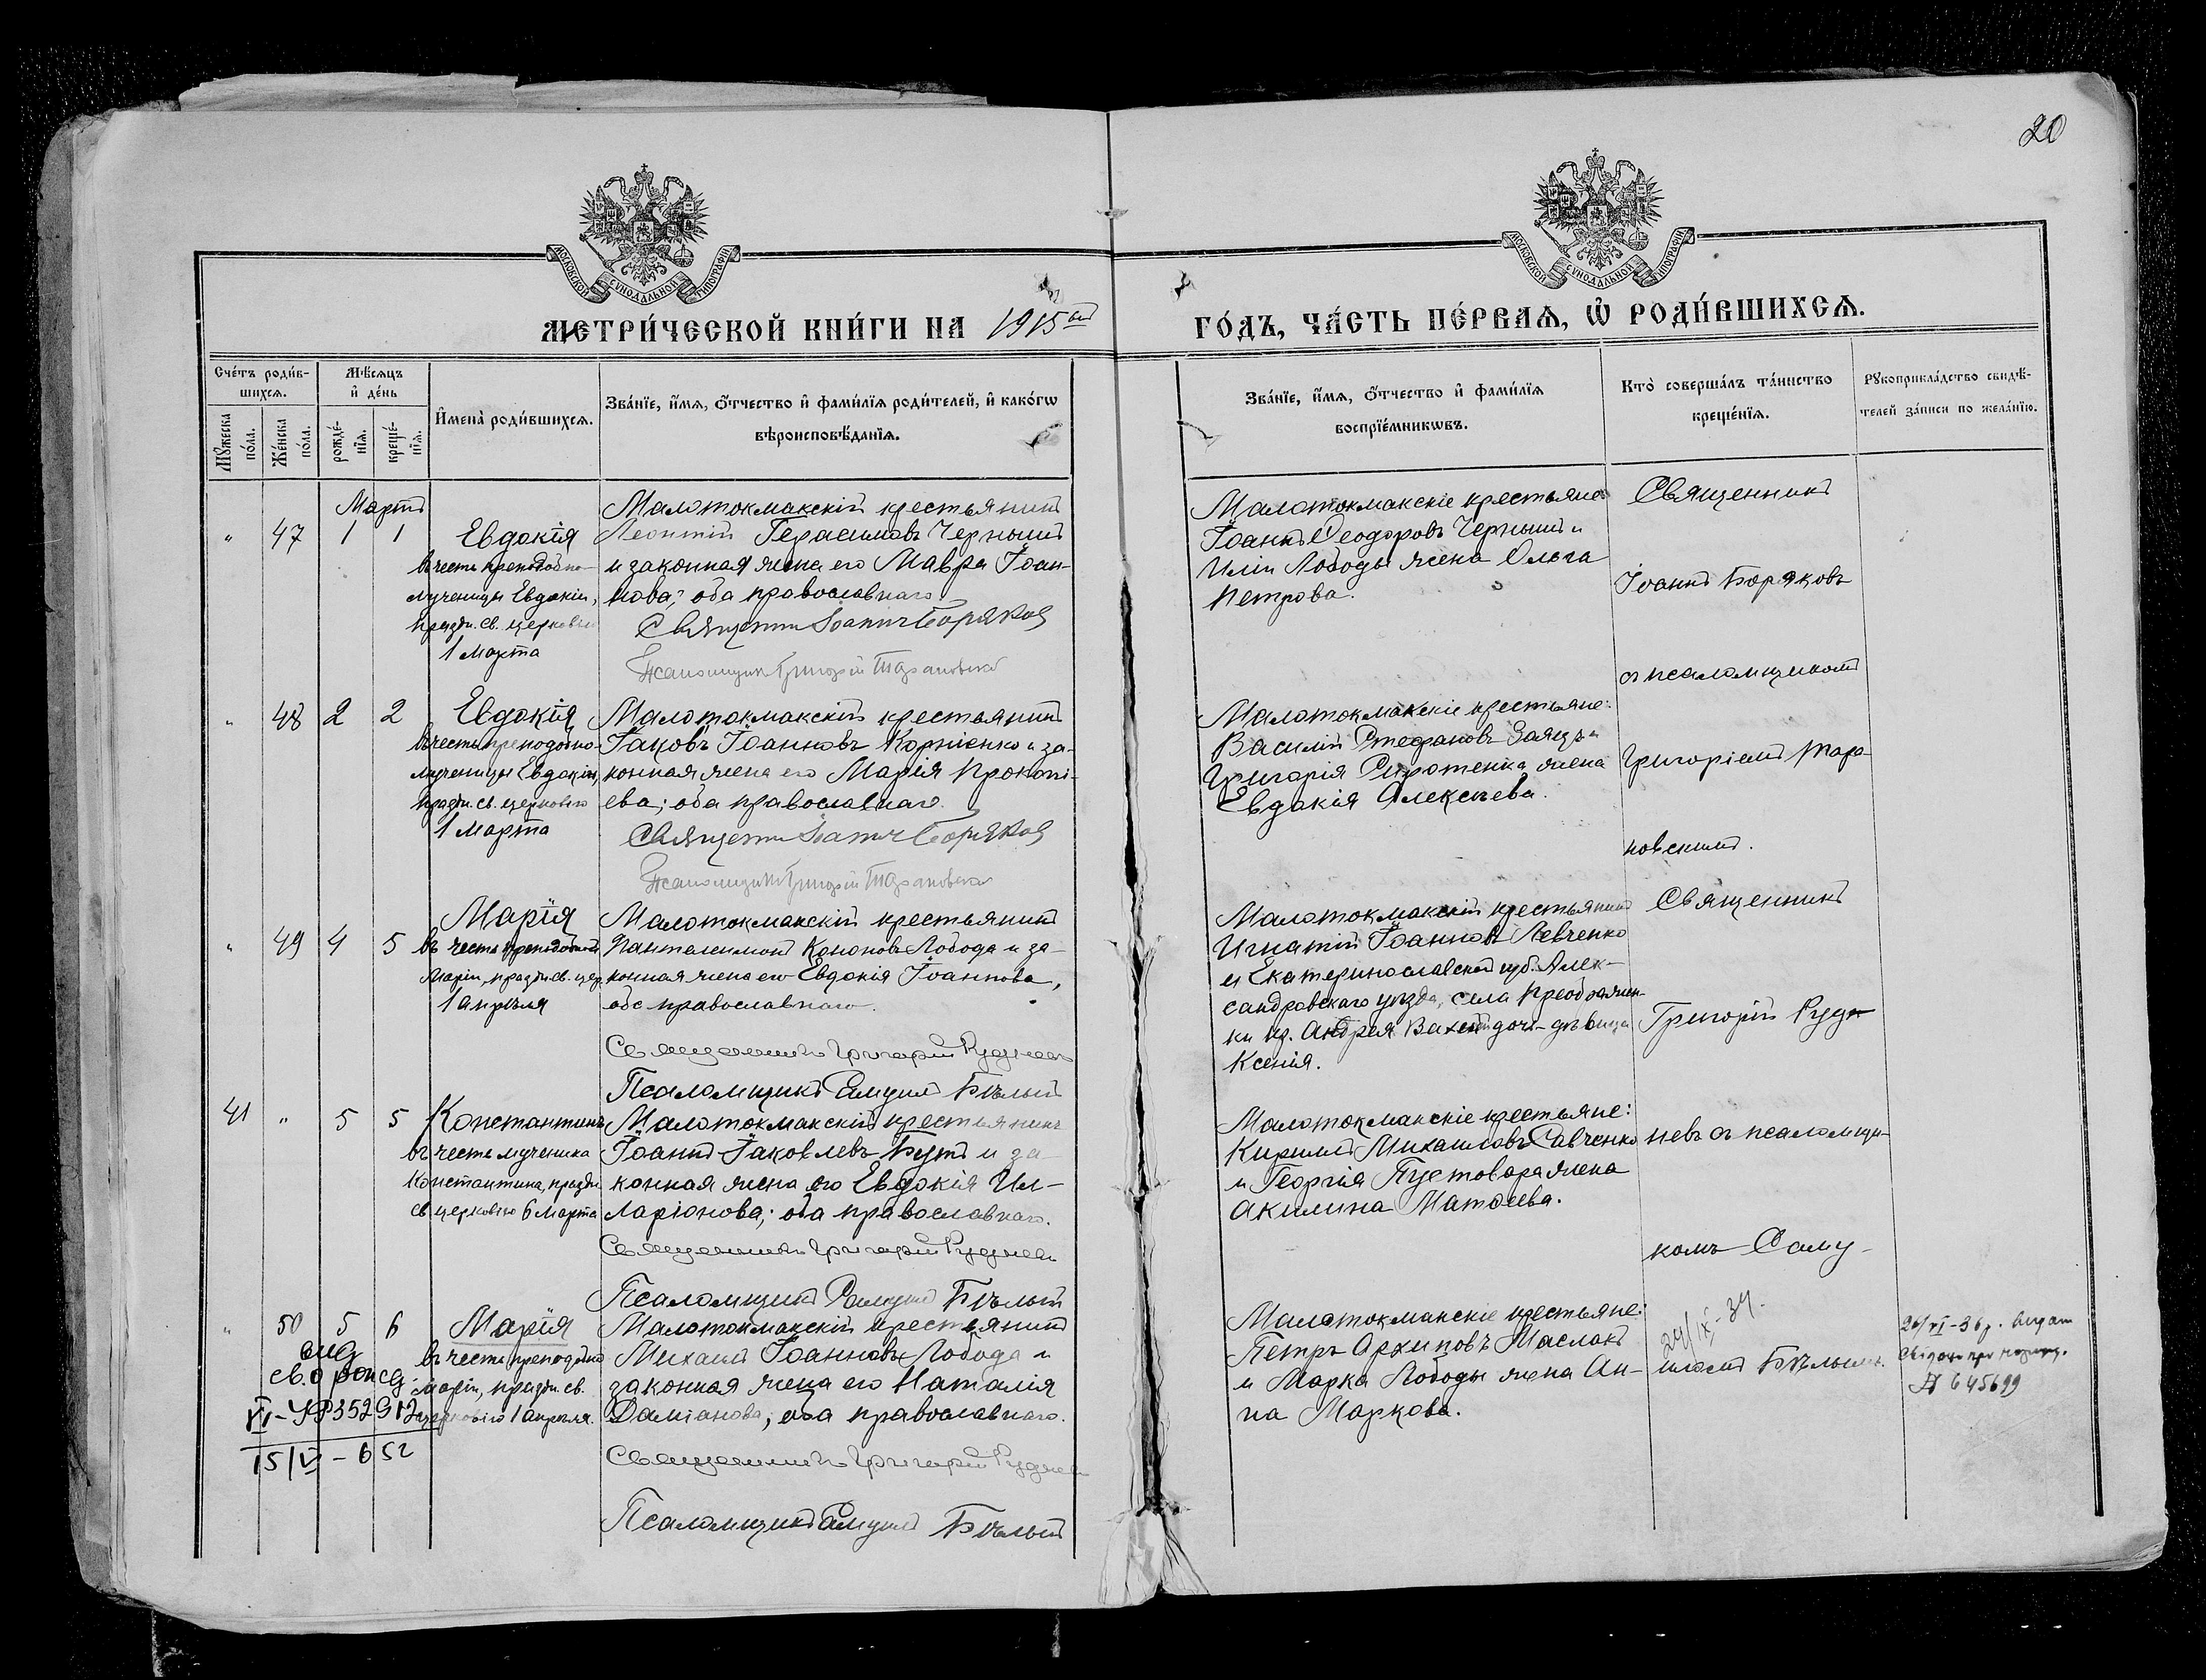 20
МОСКОВСКОЙ СѴНОДАЛЬНОЙ ТИПОГРАФІИ
МОСКОВСКОЙ СѴНОДАЛЬНОЙ ТИПОГРАФІИ
МЕТРИ́ЧЕСКОЙ КНИ́ГИ НА 1915ый ГО́ДЪ, ЧА́СТЬ ПЕ́РВАѦ, Ѡ҆ РОДИ́ВШИХСѦ.
Сче́тъ роди́в-
шихсѧ.
Мꙋ́жеска по́ла.
Же́нска по́ла.
Мѣ́сѧцъ
и҆ де́нь
рожде́-
нїѧ.
креще́-
нїѧ.
И҆мена̀ роди́вшихсѧ.
Зва́нїе, и҆́мѧ, ѻ҆́тчество и҆ фами́лїѧ роди́телей, и҆ како́гѡ
вѣроисповѣ́данїѧ.
Зва́нїе, и҆́мѧ, ѻ҆́тчество и҆ фами́лїѧ
воспрїе́мникѡвъ.
Кто̀ соверша́лъ та́инство
креще́нїѧ.
Рꙋкоприкла́дство свидѣ́-
телей за́писи по жела́нїю.
Мартъ
" 47 1 1
Евдокія
въ честь преподобно-
мученицы Евдокіи,
праздн. св. церковію
1 Марта
Малотокмакскій крестьянинъ
Леонтій Герасимовъ Черный
и законная жена его Мавра Іоан-
нова; оба православнаго.
Священникъ Іоаннъ Боряковъ
Псаломщикъ Григорій Тарановскій
Малотокмакскіе крестьяне:
Іоаннъ Ѳеодоровъ Черный и
Иліи Лободы жена Ольга
Петрова.
Священникъ
Іоаннъ Боряковъ
съ псаломщикомъ
" 48 2 2
Евдокія
въ честь преподобно-
мученицы Евдокіи,
праздн. св. церковію
1 Марта
Малотокмакскій крестьянинъ
Іаковъ Іоанновъ Корніенко и за-
конная жена его Марія Прокопі-
ева; оба православнаго.
Священникъ Іоаннъ Боряковъ
Псаломщикъ Григорій Тарановскій
Малотокмакскіе крестьяне:
Василій Стефановъ Заяцъ и
Григорія Сиротенка жена
Евдокія Алексѣева.
Григоріемъ Тара-
новскимъ.
" 49 4 5
Марія
въ честь преподобной
Маріи, праздн. св. цер.
1 апрѣля
Малотокмакскій крестьянинъ
Пантелеимонъ Кононовъ Лобода и за-
конная жена его Евдокія Іоаннова,
оба православнаго.
Священникъ Григорій Рудневъ
Псаломщикъ Самуилъ Бѣлый
Малотокмакскій крестьянинъ
Игнатій Іоанновъ Левченко
и Екатеринославской губ. Алек-
сандровскаго уѣзда, села Преображен-
ки кр. Андрея дочь-дѣвица
Ксенія.
Священникъ
Григорій Руд-
41 " 5 5
Константинъ
въ честь мученика
Константина, праздн.
св. церковію 6 Марта
Малотокмакскій крестьянинъ
Іоаннъ Іаковлевъ Бутъ и за-
конная жена его Евдокія Ил-
ларіонова; оба православнаго.
Священникъ Григорій Рудневъ
Псаломщикъ Самуилъ Бѣлый
Малотокмакскіе крестьяне:
Кириллъ Михаиловъ Савченко
и Георгія Пустовара жена
Акилина Матѳеева.
невъ съ псаломщи-
комъ Саму-
" 50 5 6
Марія
въ честь преподобной
Маріи, праздн. св.
церковію 1 апрѣля.
Малотокмакскій крестьянинъ
Михаилъ Іоанновъ Лобода и
законная жена его Наталія
Даміанова; оба православнаго.
Священникъ Григорій Рудневъ
Псаломщикъ Самуилъ Бѣлый
Малотокмакскіе крестьяне:
Петръ Архиповъ Маслакъ
и Марка Лободы жена Ан-
на Маркова.
24/IX-34.
иломъ Бѣлымъ.
св. о рожд.
352912
15/VI - 652
26/VI-36 р. видат
645699